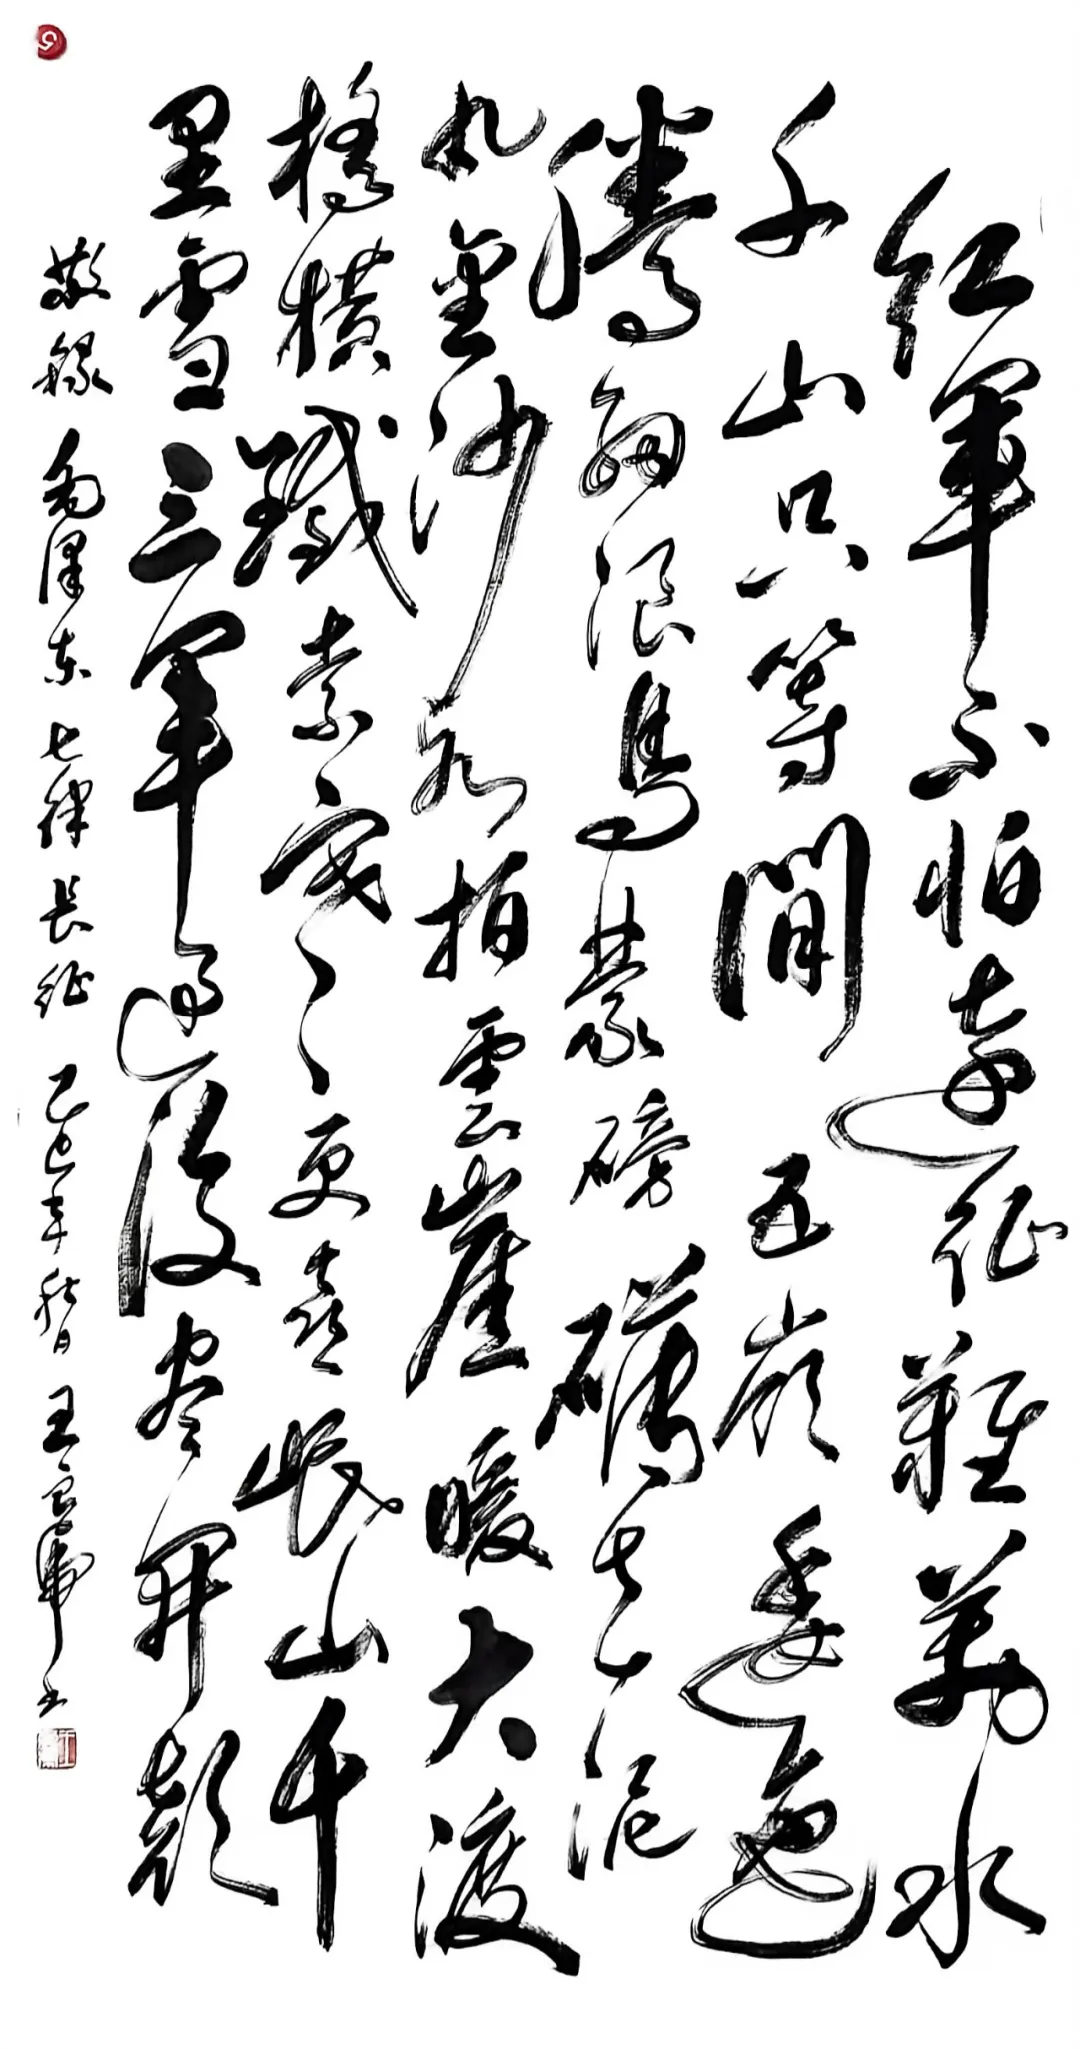 红軍不怕遠征難萬水
千山只等閒五嶺逶迤
騰細浪烏蒙磅礴走泥
丸金沙水拍雲崖暖大渡
橋横鐵索寒更喜岷山千
里雪三軍過後尽開颜
敬録毛泽东七律長征乙巳年秋日王虎书